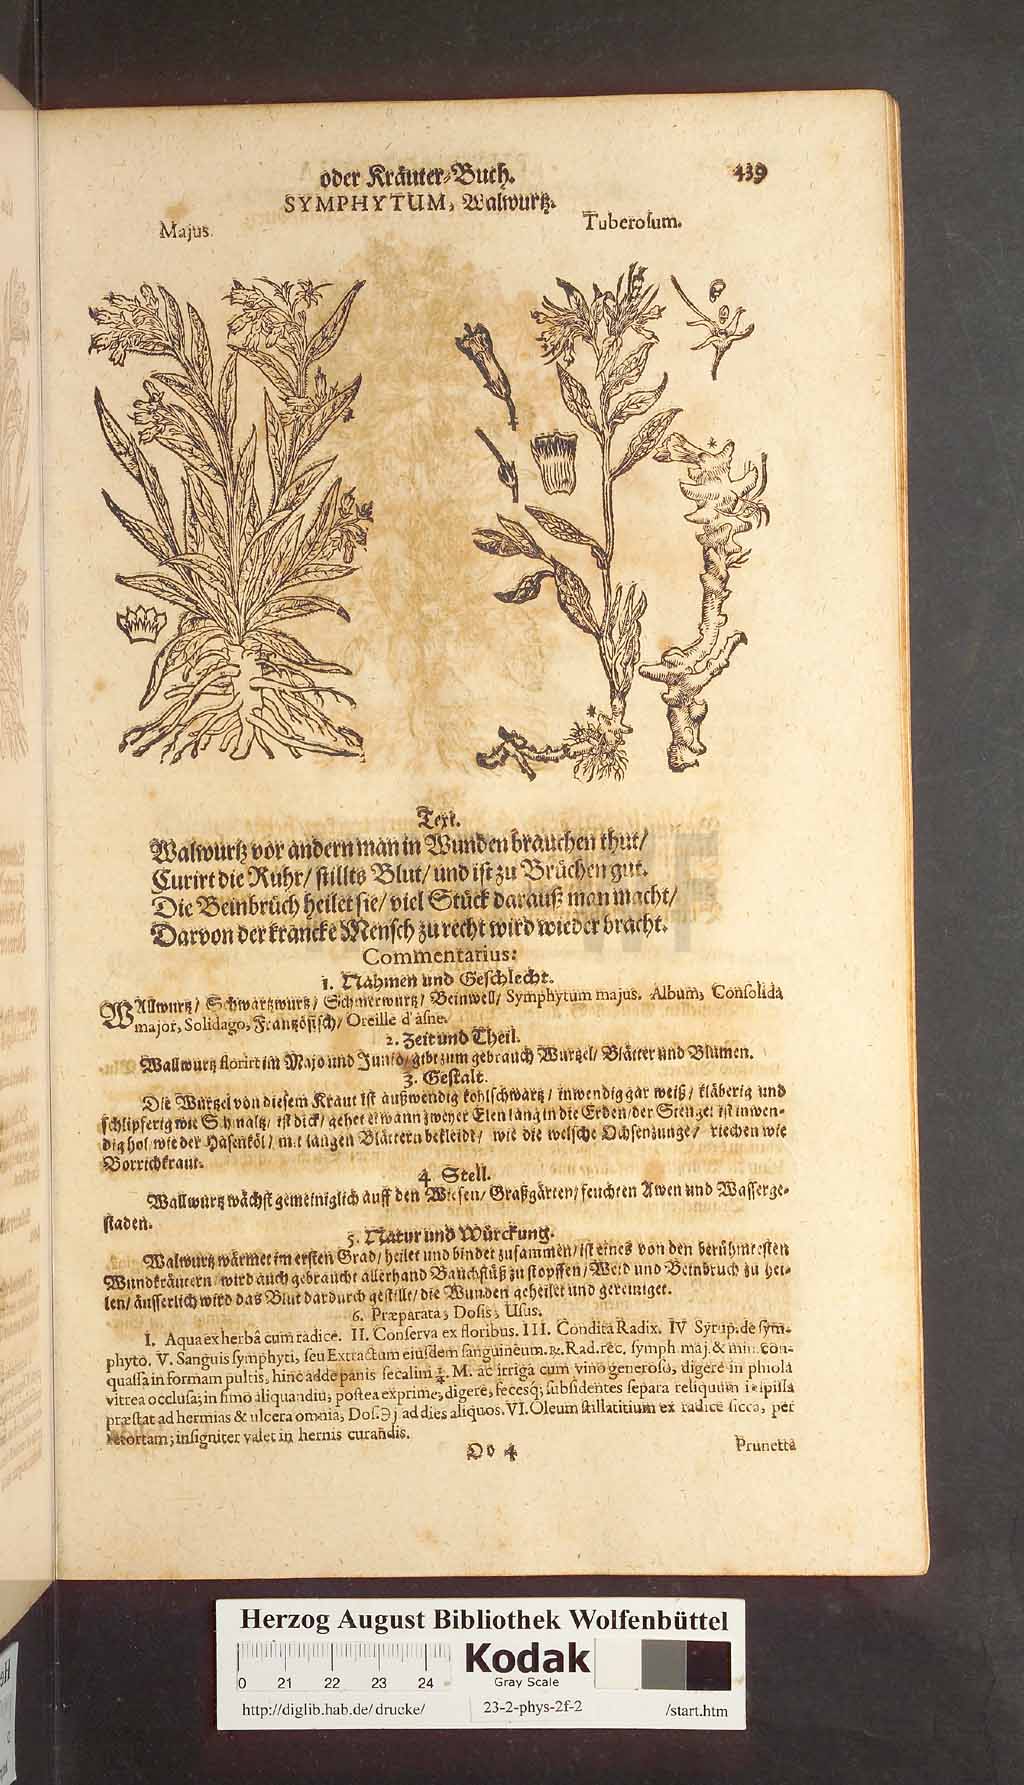 oder Kräuter-Buch. 439
SYMPHYTUM, Walwurtz.
Majus. Tuberosum.
Text.
Walwurtz vor andern man in Wunden brauchen thut/
Curirt die Ruhr/ stillts Blut/ und ist zu Brüchen gut.
Die Beinbrüch heilet sie/ viel Stück darauß man macht/
Darvon der krancke Mensch zu recht wird wieder bracht.
Commentarius:
1. Nahmen und Geschlecht.
WAllwurtz/ Schwartzwurtz/ Schmerwurtz/ Beinwell/ Symphytum majus. Album, Consolida
major, Solidago, Frantzösisch/ Oreille d'asne.
2. Zeit und Theil.
Wallwurtz florirt im Majo und Junio/ gibt zum gebrauch Wurtzel/ Blätter und Blumen.
3. Gestalt.
Die Wurtzel von diesem Kraut ist außwendig kohlschwartz/ inwendig gar weiß/ kläberig und
schlipferig wie Schmaltz/ ist dick/ gehet etwann zweyer Elen lang in die Erden/ der Stengel ist inwen-
dig hol wie der Hasenköl/ mit langen Blättern bekleidt/ wie die welsche Ochsenzunge/ riechen wie
Borrichkraut.
4. Stell.
Wallwurtz wächst gemeiniglich auff den Wiesen/ Graßgärten/ feuchten Awen und Wasserge-
staden.
5. Natur und Würckung.
Walwurtz wärmet im ersten Grad/ heilet und bindet zusammen/ ist eines von den berühmtesten
Wundkräutern/ wird auch gebraucht allerhand Bauchflüß zu stopffen/ Weid und Beinbruch zu hei-
len/ äusserlich wird das Blut dardurch gestillt/ die Wunden geheilet und gereiniget.
6. Præparata, Dosis, Usus.
I. Aqua ex herbâ cum radice. II. Conserva ex floribus. III. Condita Radix. IV Syrup. de sym-
phyto. V. Sanguis symphyti, seu Extractum ejusdem sanguineum. ℞. Rad. rec. symph maj. & min. con-
quassa in formam pultis, hinc adde panis secalini ¼. M. ac irriga cum vino generoso, digere in phiola
vitrea occlusa; in fimo aliquandiu, postea exprime, digere, fecesq; subsidentes separa reliquum inspissa
præstat ad hermias & ulcera omnia, Dos. ℈j ad dies aliquos. VI. Oleum stillatitium ex radice sicca, per
retortam; insigniter valet in hernis curandis.
Oo 4 Prunella
Herzog August Bibliothek Wolfenbüttel
0 21 22 23 24
Kodak
Gray Scale
http://diglib.hab.de/drucke/ 23-2-phys-2f-2 /start.htm